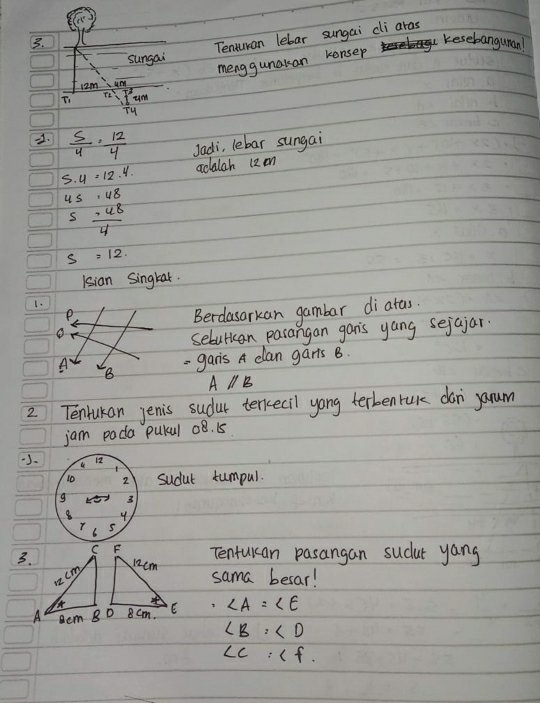 3.
Sungai
Tentukan lebar sungai di atas
menggunakan konsep kesebangunan!
12m 4m
T1 T2 T3
4m
T4
-J. S/4 = 12/4
Jadi, lebar sungai
adalah 12 m
S.4 = 12.4.
4S = 48
S = 48/4
S = 12.
Isian Singkat.
1.
P
Q
A
B
Berdasarkan gambar di atas.
Sebutkan pasangan garis yang sejajar.
= garis A dan garis B.
A // B
2 Tentukan jenis sudut terkecil yang terbentuk dari jarum
jam pada pukul 08.15
-J.
12 1 2 3 4 5 6 7 8 9 10
Sudut tumpul.
3.
C F
12 cm 12cm
A 8cm B D 8cm. E
Tentukan pasangan sudut yang
sama besar!
. <A = <E
<B = <D
<C = <f.